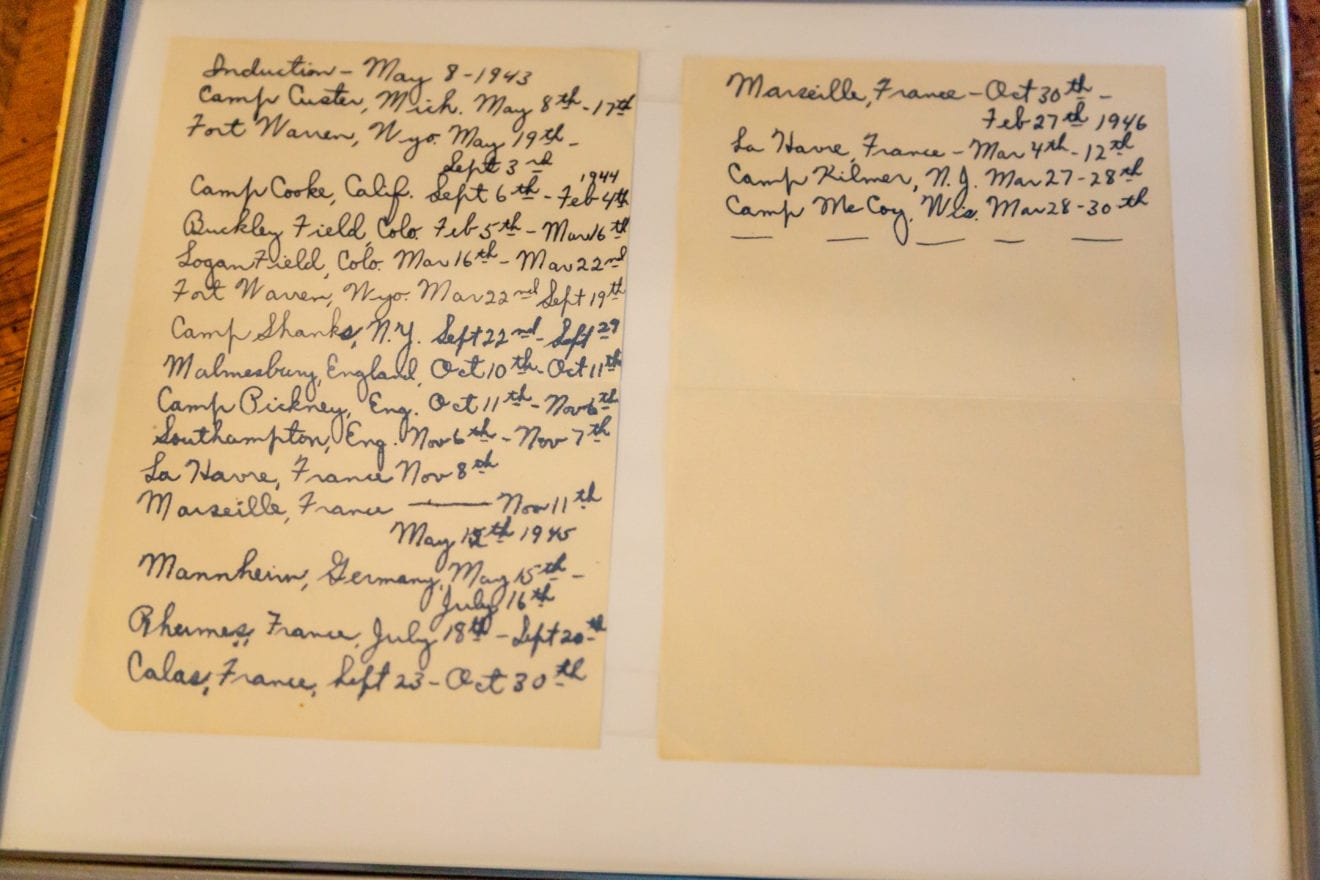 Induction - May 8 - 1943
Camp Custer, Mich. May 8th - 17th
Fort Warren, Wyo. May 19th -
Sept 3rd
1944
Camp Cooke, Calif. Sept 6th - Feb 4th
Buckley Field, Colo. Feb 5th - Mar 16th
Logan Field, Colo. Mar 16th - Mar 22nd
Fort Warren, Wyo. Mar 22nd Sept 19th
Camp Shanks, N.Y. Sept 22nd - Sept 29
Malmesbury, England, Oct 10th - Oct 11th
Camp Pickney, Eng. Oct 11th - Nov 6th
Southampton, Eng. Nov 6th - Nov 7th
La Havre, France Nov 8th
Marseille, France —— Nov 11th
May 1945
Mannheim, Germany, May 15th -
July 16th
Rheimes, France, July 18th - Sept 20th
Calas, France, Sept 23 - Oct 30th
Marseille, France - Oct 30th -
Feb 27th 1946
La Havre, France - Mar 4th - 12th
Camp Kilmer, N.J. Mar 27 - 28th
Camp McCoy, Wis. Mar 28 - 30th